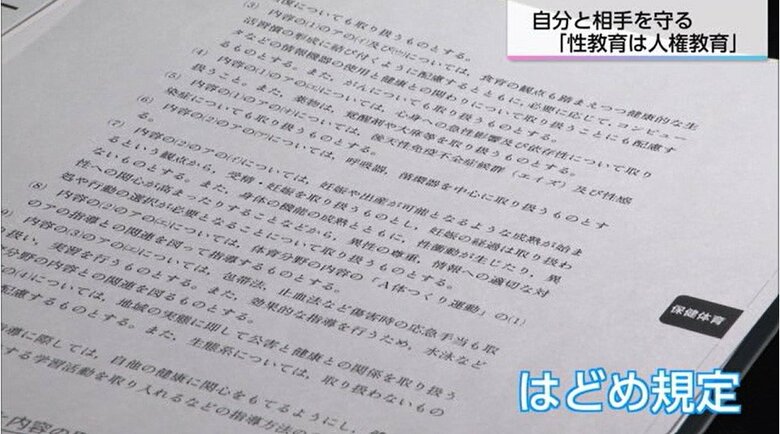 自分と相手を守る
「性教育は人権教育」
復についても取り扱うものとする。
(3) 内容の(1)のアの(イ)及び(ウ)については，食育の観点も踏まえつつ健康的な生
活習慣の形成に結び付くように配慮するとともに，必要に応じて，コンピュー
タなどの情報機器の使用と健康との関わりについて取り扱うことにも配慮す
るものとする。また，がんについても取り扱うものとする。
(4) 内容の(1)のアの(エ)については，心身への急性影響及び依存性について取り
扱うこと。また，薬物は，覚醒剤や大麻等を取り扱うものとする。
(5) 内容の(1)のアの(オ)については，後天性免疫不全症候群（エイズ）及び性感
染症についても取り扱うものとする。
(6) 内容の(2)のアの(ア)については，呼吸器，循環器を中心に取り扱うものとす
る。
(7) 内容の(2)のアの(イ)については，妊娠や出産が可能となるような成熟が始ま
るという観点から，受精・妊娠を取り扱うものとし，妊娠の経過は取り扱わ
ないものとする。また，身体の機能の成熟とともに，性衝動が生じたり，異
性への関心が高まったりすることなどから，異性の尊重，情報への適切な対
処や行動の選択が必要となることについて取り扱うものとする。
(8) 内容の(2)のアの(エ)については，体育分野の内容の「Ａ体つくり運動」の(1)
のアの指導との関連を図って指導するものとする。
内容の(3)のアの(エ)については，包帯法，止血法など傷害時の応急手当も取
り扱い，実習を行うものとする。また，効果的な指導を行うため，水泳など
分野の内容との関連を図るものとする。
の(4)については，地域の実態に即して公害と健康との関係を取り扱う
配慮するものとする。また，生態系については，取り扱わないもの
指導に際しては，自他の健康に関心をもてるようにし，
する学習活動を取り入れるなどの指導方法の
内容の取
保健体育
はどめ規定